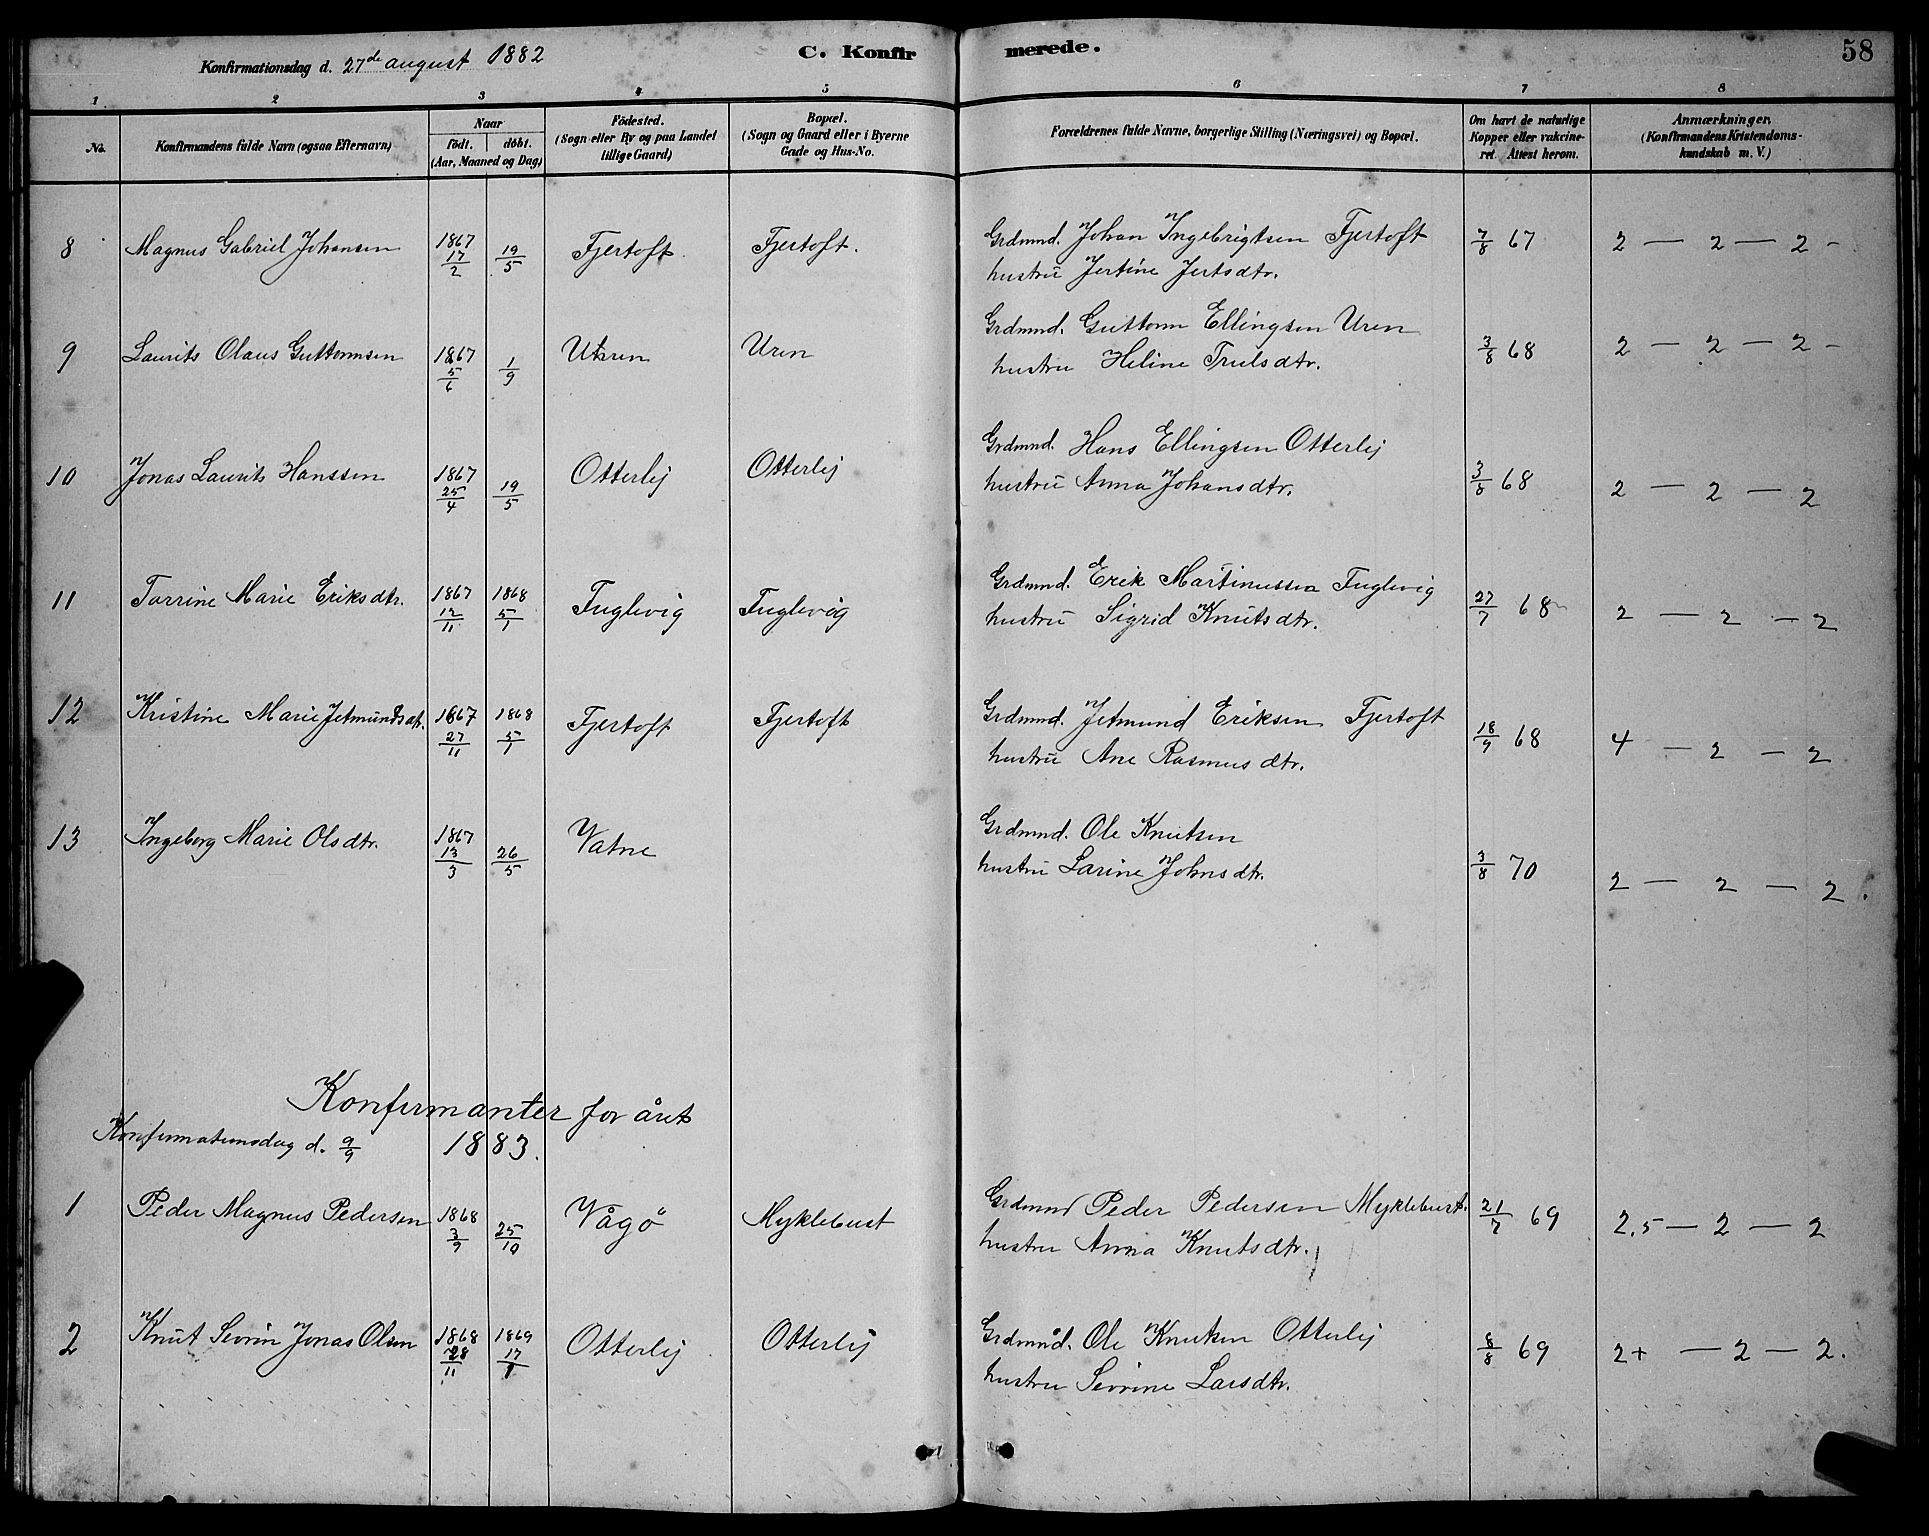 Konfirmationsdag d. 27de august 1882
C. Konfirmerede.
58
1 2 3 4 5 6 7 8
No.
Konfirmandens fulde Navn (ogsaa Efternavn)
Naar
födt. döbt.
(Aar, Maaned og Dag)
Födested.
(Sogn eller By og paa Landet
tillige Gaard)
Bopæl.
(Sogn og Gaard eller i Byerne
Gade og Hus-No.
Forældrenes fulde Navne, borgerlige Stilling (Næringsvei) og Bopæl.
Om havt de naturlige
Kopper eller vakcine-
ret. Attest herom.
Anmærkninger.
(Konfirmandens Kristendoms-
kundskab m. V.)
8 Magnus Gabriel Johansen 1867 17/2 19/5 Fjertoft Fjertoft. Grdmnd. Johan Ingebrigtsen Fjertoft 7/8 67 2 — 2 — 2 -
hustru Jertine Jertsdtr.
9 Laurits Olaus Guttormsen 1867 5/6 1/9 Ukren Uren Grdmnd. Guttorm Ellingsen Uren 3/8 68 2 — 2 — 2 -
hustru Heline Trulsdtr.
10 Jonas Laurits Hanssen 1867 25/4 19/5 Otterlej Otterlej Grdmnd. Hans Ellingsen Otterlej 3/8 68 2 — 2 — 2
hustru Anna Johansdtr.
11 Torrine Marie Eriksdtr. 1867 12/11 1868 5/1 Fuglevig Fuglevig Grdmnd. Erik Martinussen Fuglevig 27/7 68 2 — 2 — 2
hustru Sigrid Knutsdtr.
12 Kristine Marie Jetmundsdtr. 1867 27/11 1868 5/1 Fjertoft Fjertoft Grdmnd. Jetmund Eriksen Fjertoft 18/9 68 4 — 2 — 2
hustru Ane Rasmusdtr.
13 Ingeborg Marie Olsdtr. 1867 13/3 26/5 Vatne Grdmnd. Ole Knutsen 3/8 70 2 — 2 — 2.
hustru Larine Johnsdtr.
Konfirmanter for året
Konfirmationsdag d. 9/9 1883.
1 Peder Magnus Pedersen 1868 3/9 25/10 Vågö Myklebust Grdmnd Peder Pedersen Myklebust. 21/7 69 2.5 — 2 — 2
hustru Anna Knutsdtr.
2 Knut Sevrin Jonas Olsen 1868 28/11 1869 17/1 Otterlej Otterlej Grdmnd. Ole Knutsen Otterlej 8/8 69 2+ — 2 — 2.
hustru Sevrine Larsdtr.